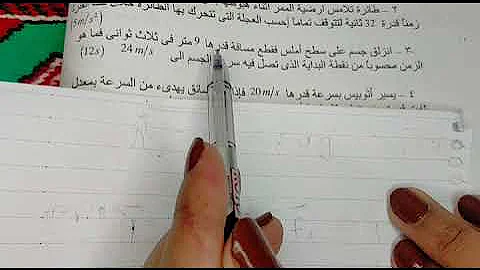 ٢ - طائرة تلامس ارضية الممر اثناء
زمناً قدرة 32 ثانية لتتوقف تماماً إحسب العجلة التى تتحرك بها الطائرة
(5m/s²)
٣ - انزلق جسم على سطح أملس فقطع مسافة قدرها 9 متر فى ثلاث ثوانى فما هو
الزمن محسوباً من نقطة البداية الذى تصل فيه الجسم الى 24 m/s (12s)
٤ - يسير أتوبيس بسرعة قدرها 20 m/s يهدىء من السرعة بمعدل